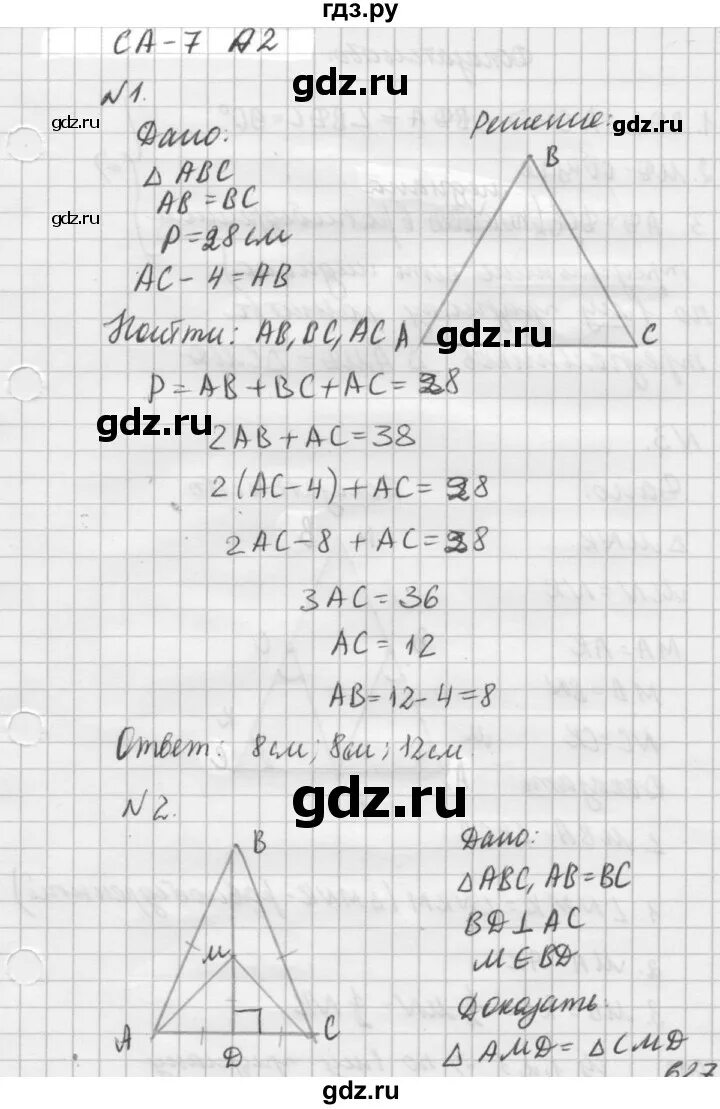 гдз.ру
СА-7 А2
gdz.ru
№1.
gdz.ru
Дано:
Решение:
gdz.ru
△ ABC
B
AB = BC
gdz.ru
P = 28 см
AC - 4 = AB
Найти: AB, BC, AC
A
gdz.ru
C
P = AB + BC + AC = 28
gdz.ru
2AB + AC = 38
2(AC-4) + AC = 28
2AC - 8 + AC = 28
3AC = 36
AC = 12
AB = 12 - 4 = 8
Ответ: 8см; 8см; 12см
gdz.ru
№2.
B
M
A
D
C
Дано:
△ABC, AB = BC
BD ⊥ AC
M ∈ BD
Доказать:
△ AMD = △ CMD
627
gdz.ru